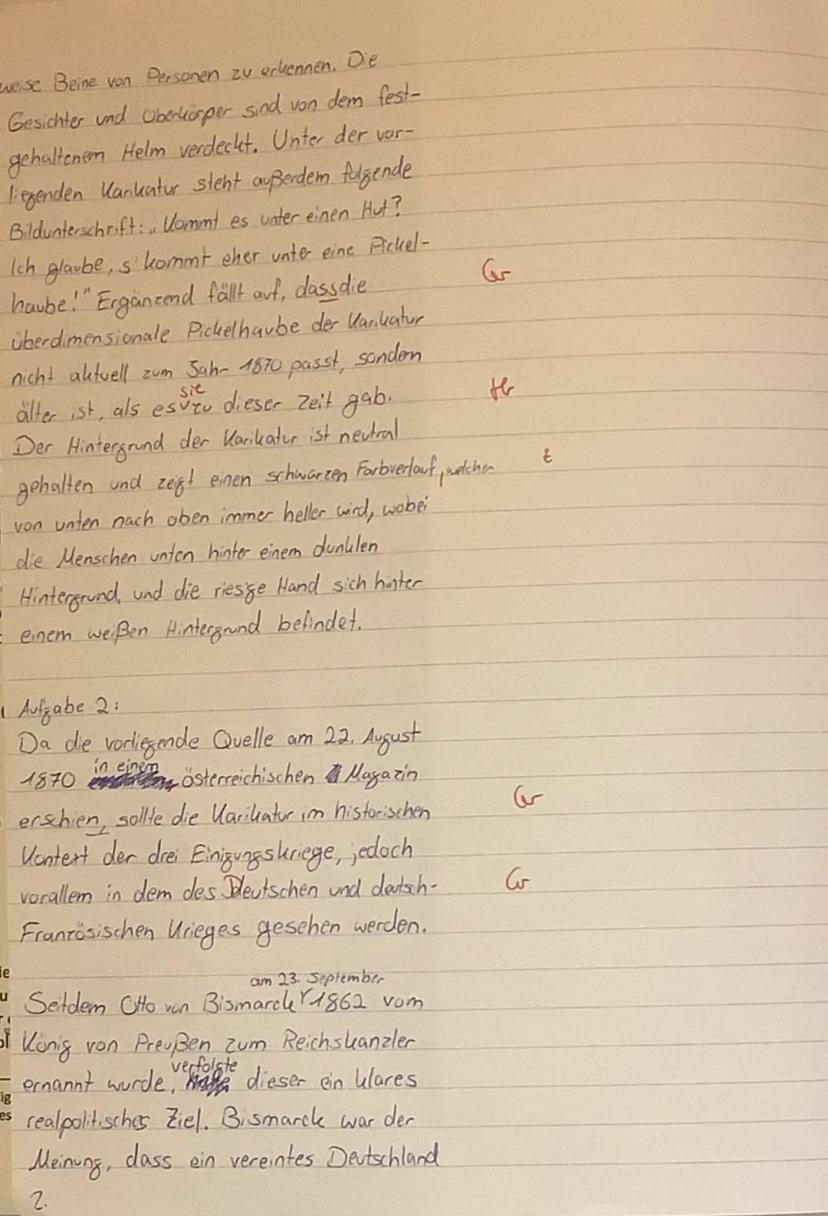 weise Beine von Personen zu erkennen. Die
Gesichter und Oberkörper sind von dem fest-
gehaltenem Helm verdeckt. Unter der vor-
liegenden Karikatur steht außerdem folgende
Bildunterschrift: „Kommt es unter einen Hut?
Ich glaube, s'kommt eher unter eine Pickel-
haube!" Ergänzend fällt auf, dass die
Gr
überdimensionale Pickelhaube der Karikatur
nicht aktuell zum Jahr 1870 passt, sondern
älter ist, als es sie zu dieser Zeit gab.
Der Hintergrund der Karikatur ist neutral
gehalten und zeigt einen schwarzen Farbverlauf, welcher
t
von unten nach oben immer heller wird, wobei
die Menschen unten hinter einem dunklen
Hintergrund, und die riesige Hand sich hinter
einem weißen Hintergrund befindet.
Aufgabe 2:
Da die vorliegende Quelle am 22. August
1870 in einem österreichischen Magazin
erschien, sollte die Karikatur im historischen
Gr
Kontext der drei Einigungskriege, jedoch
vorallem in dem des Deutschen und deutsch-
Gr
Französischen Krieges gesehen werden.
Seitdem Otto von Bismarck am 23. September 1862 vom
König von Preußen zum Reichskanzler
ernannt wurde, verfolgte dieser ein klares
realpolitisches Ziel. Bismarck war der
Meinung, dass ein vereintes Deutschland
2.